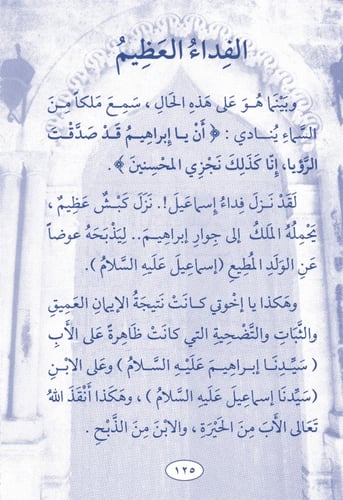 الفِداءُ العَظِيمُ
وبَيْنَما هُوَ عَلى هَذِهِ الحَالِ ، سَمِعَ مَلَكاً مِنَ
السَّماءِ يُنَادي : ﴿ أَنْ يا إبراهِيمُ قَدْ صَدَّقْتَ
الرُّؤيا، إِنَّا كَذَلِكَ نَجْزِي المُحْسِنينَ ﴾ .
لَقَدْ نَزلَ فِداءُ إسماعيلَ !. نَزَلَ كَبْشٌ عَظيمٌ ،
يَحْمِلُهُ المَلَكُ إلى جِوارِ إبراهيمَ.. لِيَذْبَحَهُ عوضاً
عَنِ الوَلَدِ المُطيعِ (إسماعيلَ عَلَيهِ السَّلامُ) .
وهَكذا يا إخْوتي كـانَتْ نَتيجَةُ الإيمانِ العَميقِ
والثَّباتِ والتَّضْحيةِ التي كانَتْ ظاهِرةً عَلى الأَبِ
( سَيِّدنَـا إبراهيمَ عَلَيْهِ السَّلامُ ) وعَلى الابْنِ
(سَيِّدنَا إسماعيلَ عَلَيهِ السَّلامُ ) ، وهَكَذا أَنْقَذَ اللهُ
تَعَالى الأَبَ مِنَ الحَيْرَةِ ، والابْنَ مِنَ الذَّبْحِ .
١٢٥